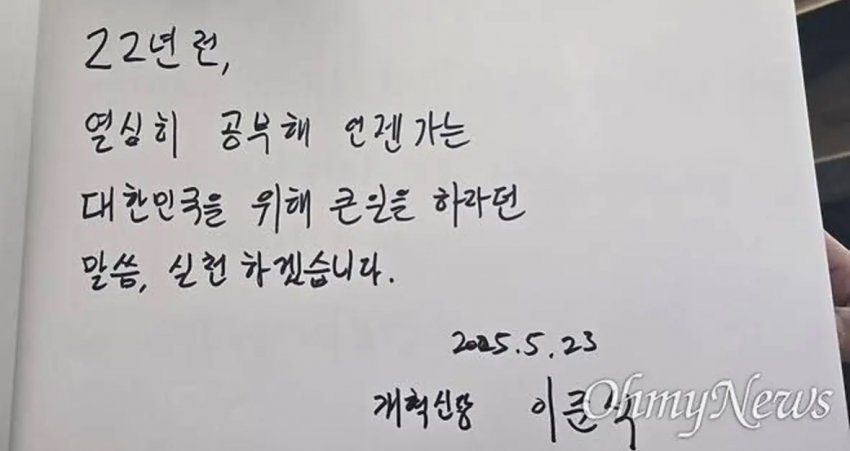 22년 전,
열심히 공부해 언젠가는
대한민국을 위해 큰 일을 하라던
말씀, 실천하겠습니다.
2025.5.23
개혁신당 이준석
OhmyNews